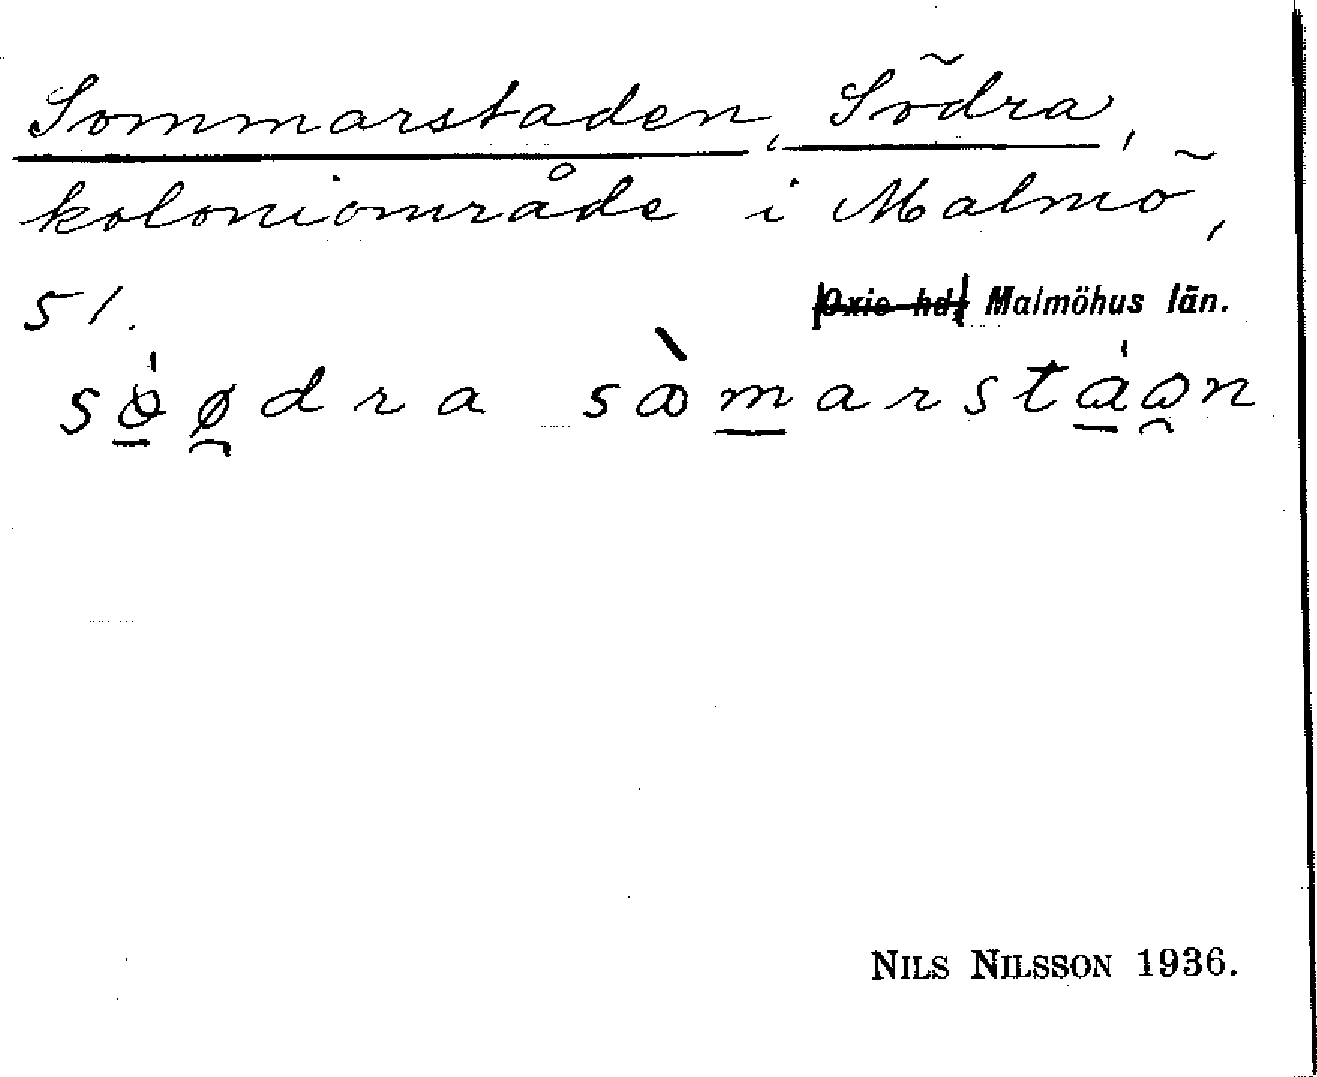 Sommarstaden, Södra,
koloniområde i Malmö,
51. Oxie hd, Malmöhus län.
søødra sɷmarstaɷn
NILS NILSSON 1936.